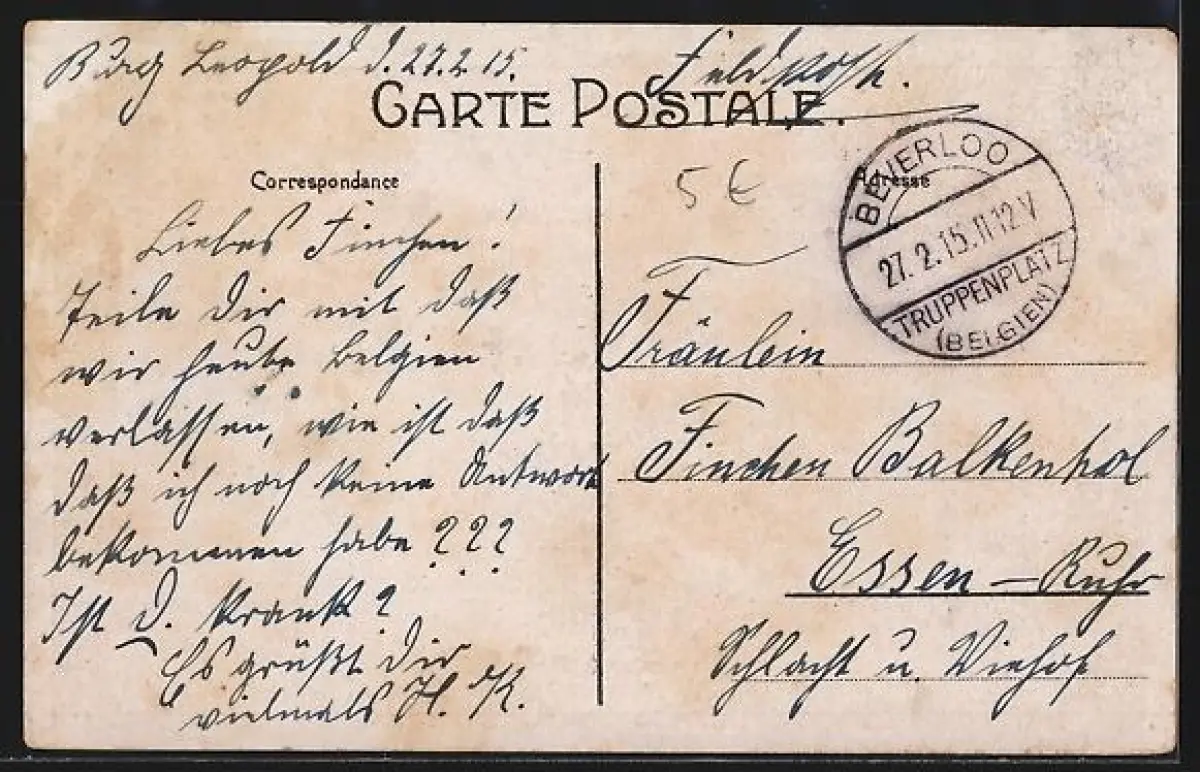 Burg Leopold d. 27.2.15.
Feldpost.
CARTE POSTALE.
Correspondance
Liebes Finchen!
Teile Dir mit daß
wir heute Belgien
verlassen, wie ist daß
daß ich noch keine Antwort
bekommen habe ???
Ist D. krank?
Es grüßt Dir
vielmals H. K.
5 €
Adresse
BEVERLOO
27.2.15.11-12V
TRUPPENPLATZ
(BELGIEN)
Fräulein
Finchen Balkenhol
Essen - Ruhr
Schlacht u. Viehof